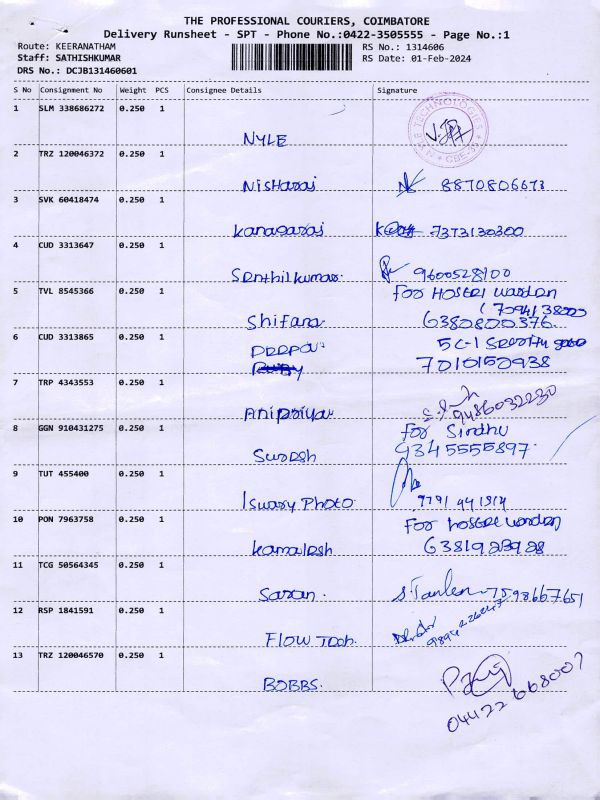 THE PROFESSIONAL COURIERS, COIMBATORE
Delivery Runsheet - SPT - Phone No.:0422-3505555 - Page No.:1
Route: KEERANATHAM RS No.: 1314606
Staff: SATHISHKUMAR RS Date: 01-Feb-2024
DRS No.: DCJB131460601
S No Consignment No Weight PCS Consignee Details Signature
1 SLM 338686272 0.250 1
NYLE
TECHNOLOGIES
CBE-35
2 TRZ 120046372 0.250 1
Nisharaj 8870806673
3 SVK 60418474 0.250 1
Kanagaraj 7373130300
4 CUD 3313647 0.250 1
Senthilkumar. 9600528100
5 TVL 8545366 0.250 1 For Hostel warden
Shifana 6380800376
6 CUD 3313865 0.250 1
Deepa
7010150938
7 TRP 4343553 0.250 1
Anipriya 9486032230
8 GGN 910431275 0.250 1 for Sindhu
Suresh 9345555897
9 TUT 455400 0.250 1
Iswary Photo 9791441914
10 PON 7963758 0.250 1 For hostel warden
Kamalesh 6381923928
11 TCG 50564345 0.250 1
Saran. 7598667651
12 RSP 1841591 0.250 1
Flow Tech.
13 TRZ 120046570 0.250 1
BOBBS.
04422668007